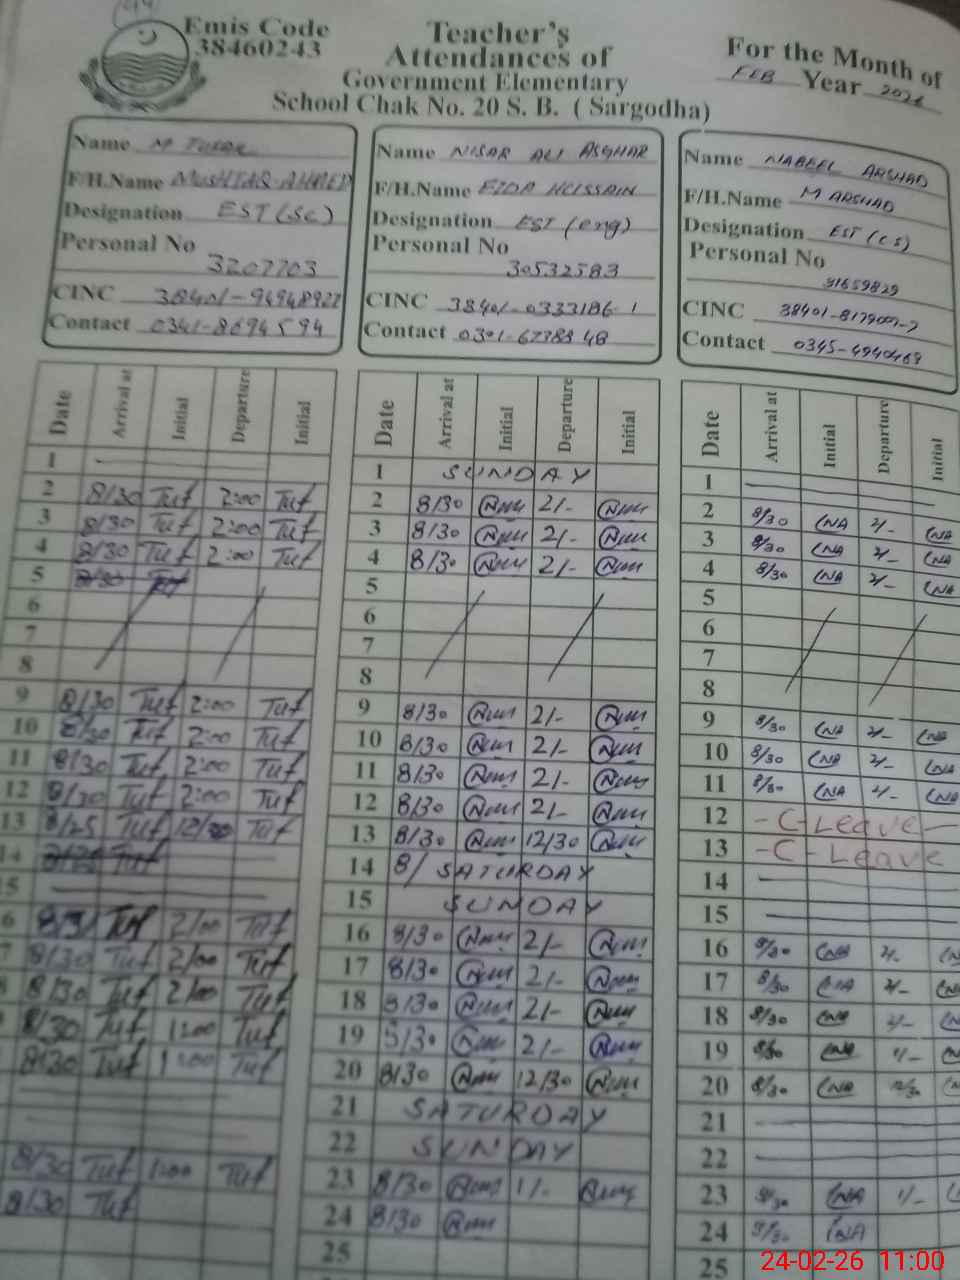 Emis Code
38460243
Teacher's
Attendances of
Government Elementary
School Chak No. 20 S. B. ( Sargodha)
For the Month of
FEB Year 2026
Name M Tufail
F/H.Name MUSHTAQ AHMED
Designation EST (SC)
Personal No
3207703
CINC 38401-9494892
Contact 0341-8694594
Name NISAR ALI ASGHAR
F/H.Name FIDA HUSSAIN
Designation EST (eng)
Personal No
30532583
CINC 38401-0333186-1
Contact 0301-6738848
Name NABEEL ARSHAD
F/H.Name M ARSHAD
Designation EST (CS)
Personal No
31659829
CINC 38401-8179009-7
Contact 0345-4940469
Date Arrival at Initial Departure Initial
1
2 8/30 Tuf 2:00 Tuf
3 8/30 Tuf 2:00 Tuf
4 8/30 Tuf 2:00 Tuf
5 8/30 Tuf
6
7
8
9 8/30 Tuf 2:00 Tuf
10 8/30 Tuf 2:00 Tuf
11 8/30 Tuf 2:00 Tuf
12 8/30 Tuf 2:00 Tuf
13 8/25 Tuf 12/30 Tuf
14 8/25 Tuf
15
6 8/31 Tuf 2/00 Tuf
7 8/30 Tuf 2/00 Tuf
8 8/30 Tuf 2/00 Tuf
8/30 Tuf 1:00 Tuf
8/30 Tuf 1:00 Tuf
8/30 Tuf 1:00 Tuf
8/30 Tuf
Date Arrival at Initial Departure Initial
1 SUNDAY
2 8/30 2/-
3 8/30 2/-
4 8/30 2/-
5
6
7
8
9 8/30 2/-
10 8/30 2/-
11 8/30 2/-
12 8/30 2/-
13 8/30 12/30
14 8/ SATURDAY
15 SUNDAY
16 8/30 2/-
17 8/30 2/-
18 8/30 2/-
19 8/30 2/-
20 8/30 12/30
21 SATURDAY
22 SUNDAY
23 8/30 1/-
24 8/30
25
Date Arrival at Initial Departure Initial
1
2 8/30 NA 2/- NA
3 8/30 NA 2/- NA
4 8/30 NA 2/- NA
5
6
7
8
9 8/30 NA 2/- NA
10 8/30 NA 2/- NA
11 8/30 NA 2/- NA
12 - C-Leave -
13 - C - Leave
14
15
16 8/30 NA 2/-
17 8/30 NA 2/-
18 8/30 NA 2/-
19 8/30 NA 1/-
20 8/30 NA 12/30
21
22
23 8/30 NA 1/-
24 8/30 NA
25
24-02-26 11:00